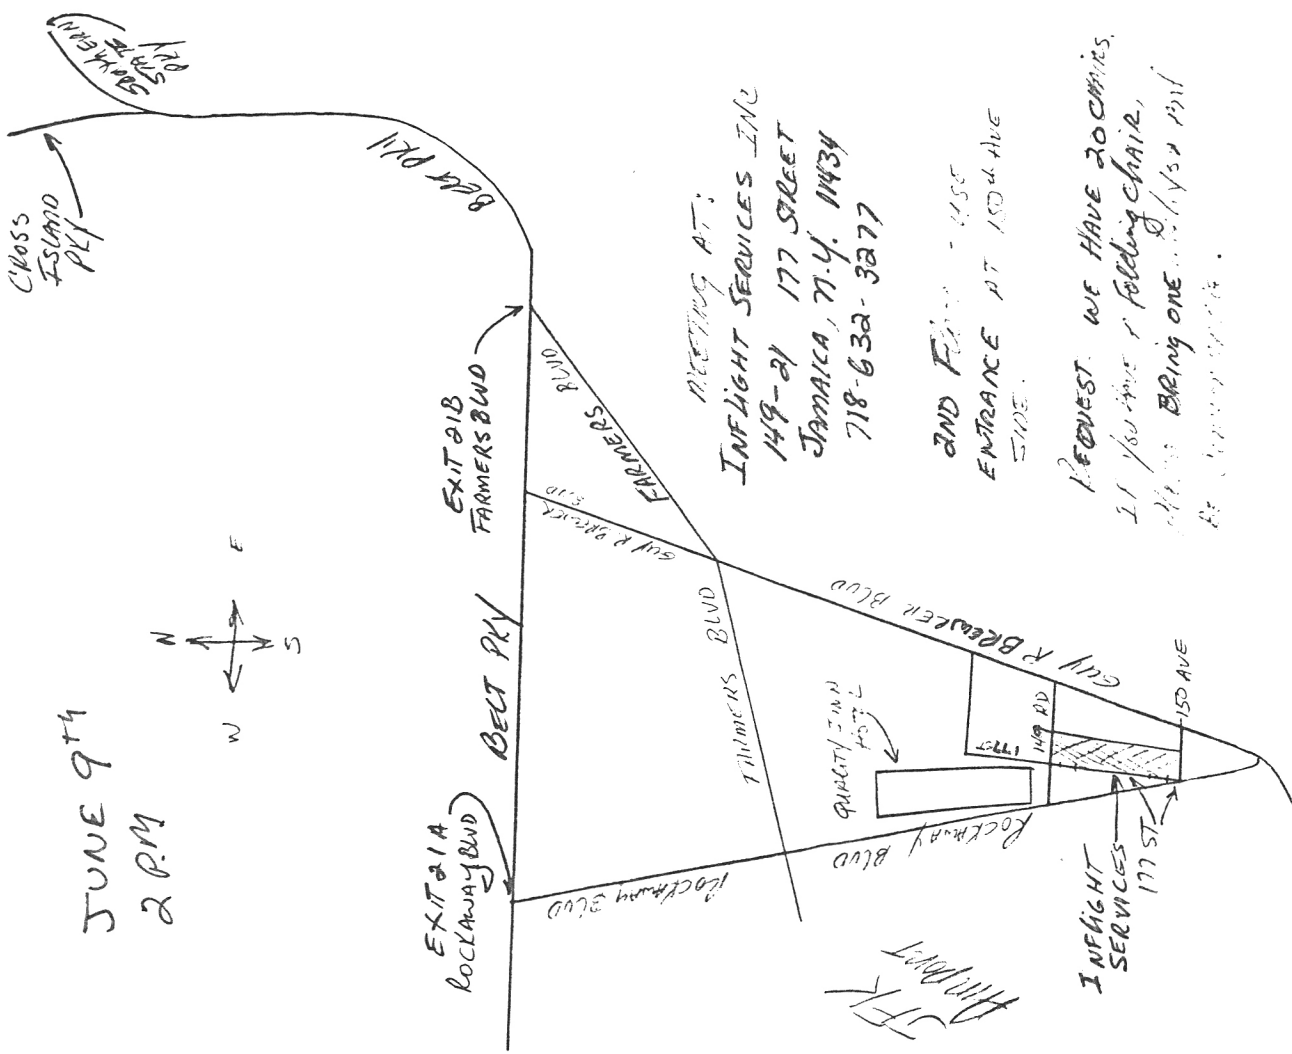 JUNE 9TH
2 P.M
N
W E
S
CROSS
ISLAND
PKY
SOUTHERN
STATE
PKY
BELT PKY
EXIT 21B
FARMERS BLVD
BELT PKY
EXIT 21A
ROCKAWAY BLVD
FARMERS BLVD
GUY R BREWER
BLVD
FARMERS BLVD
GUY R BREWER BLVD
ROCKAWAY BLVD
ROCKAWAY BLVD
QUALITY INN
HOTEL
177 ST
149 RD
150 AVE
INFLIGHT
SERVICES
177 ST
JFK
AIRPORT
MEETING AT:
INFLIGHT SERVICES INC
149-21 177 STREET
JAMAICA, N.Y. 11434
718-632-3277
2ND - USE
ENTRANCE AT 150th AVE
SIDE.
REQUEST. WE HAVE 20 CHAIRS.
If YOU HAVE A Folding CHAIR,
BRING ONE